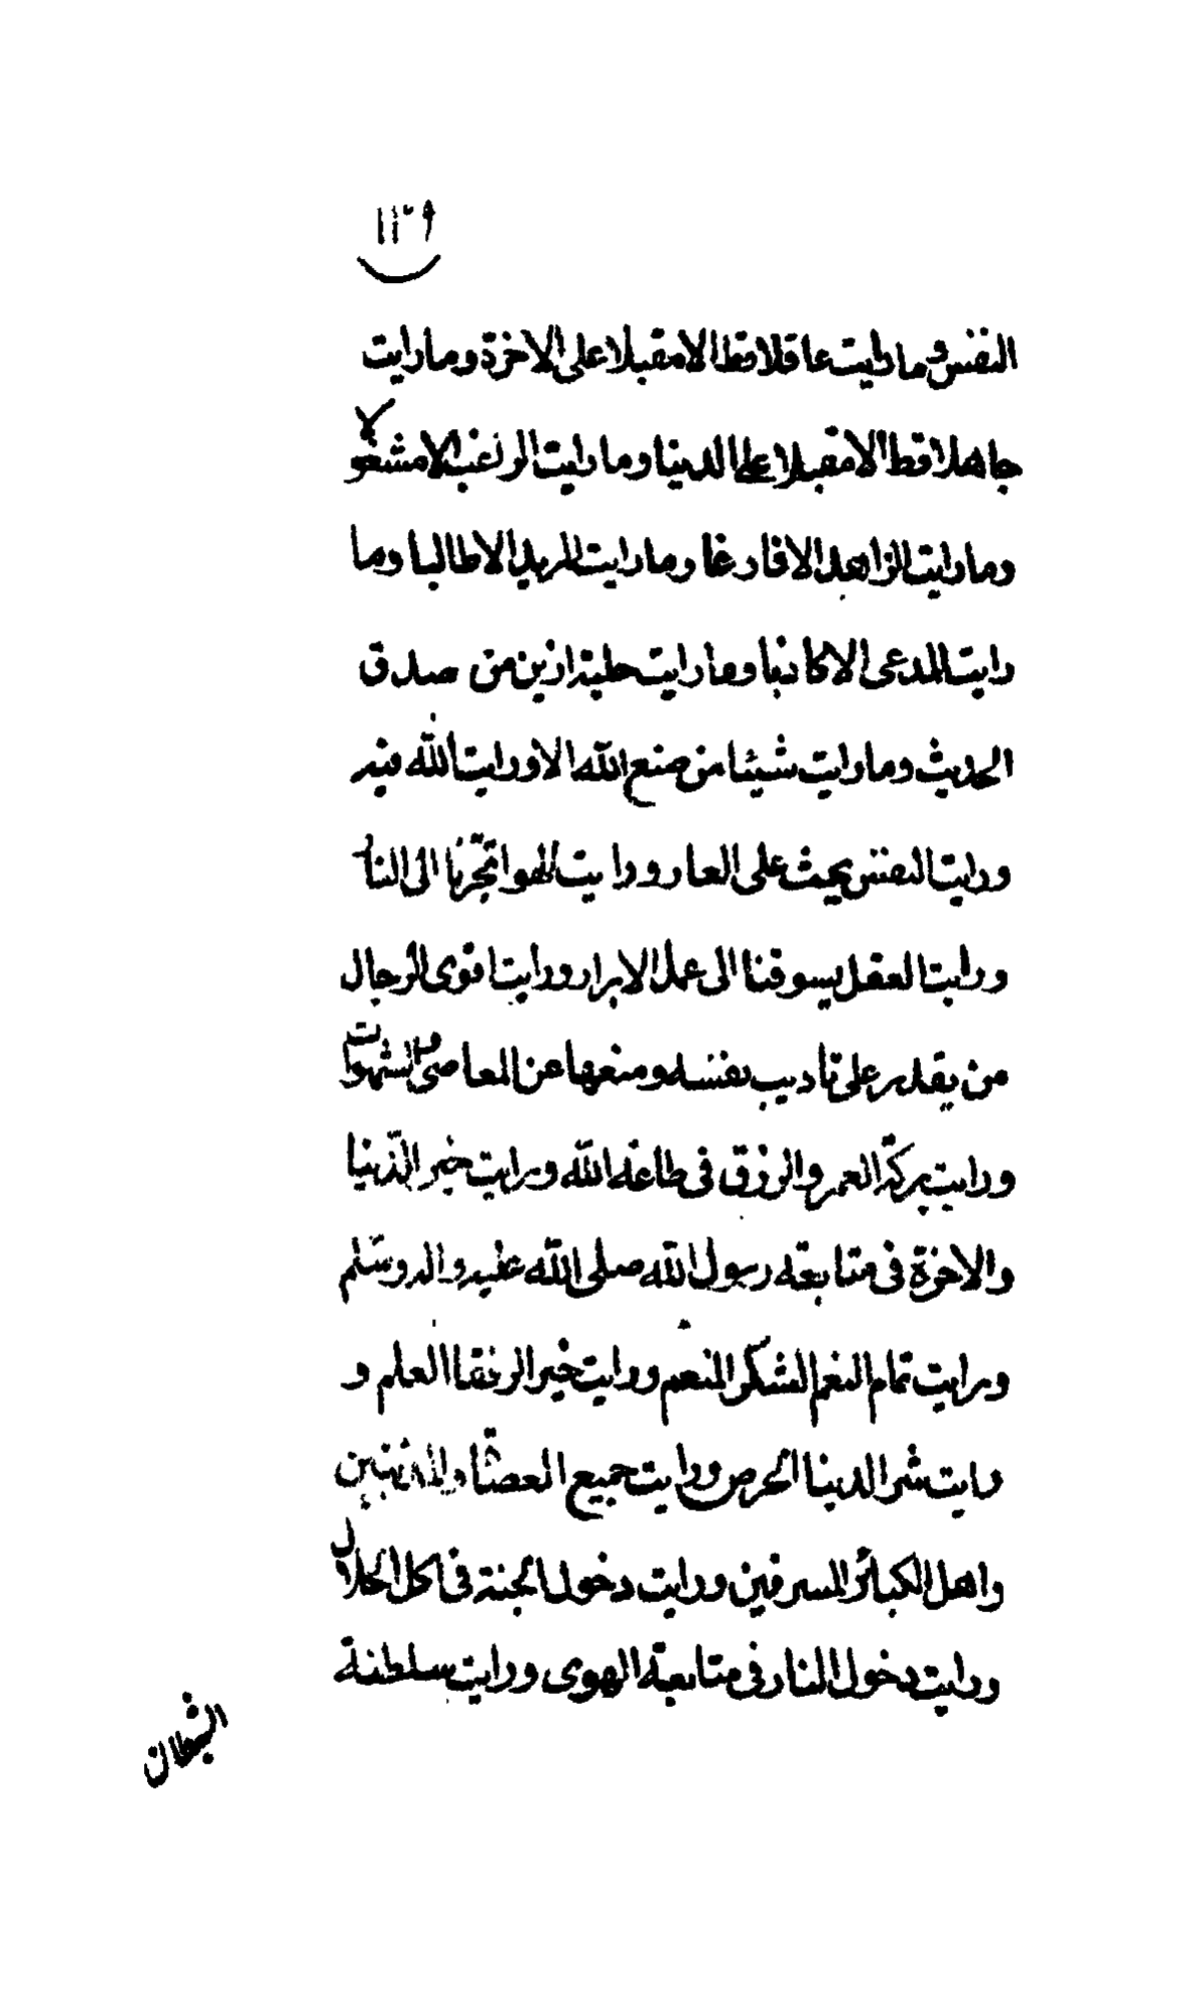 ١١٢٩
النفس وما رايت عاقلا قط الا مقبلا على الاخرة وما رايت
جاهلا قط الا مقبلا على الدنيا وما رايت الراغب الا مشغولا
وما رايت الزاهد الا فارغا وما رايت المريد الا طالبا وما
رايت المدعى الا كاذبا وما رايت حلية ازين من صدق
الحديث وما رايت شيئا من صنع الله الا ورايت الله فيه
ورايت النفس يحث على العار ورايت الهوا تجرنا الى النار
ورايت العقل يسوقنا الى عمل الابرار ورايت اقوى الرجال
من يقدر على تاديب نفسه ومنعها عن المعاصى والشهوات
ورايت بركة العمر والرزق فى طاعة الله ورايت خير الدنيا
والاخرة فى متابعة رسول الله صلى الله عليه واله وسلم
ورايت تمام النعم الشكر المنعم ورايت خير الرفقا العلم و
رايت شر الدينا الحرص ورايت جميع العصاة والمذنبين
واهل الكبائر المسرفين ورايت دخول الجنة فى اكل الحلال
ورايت دخول النار فى متابعة الهوى ورايت سلطنة
الشيطان